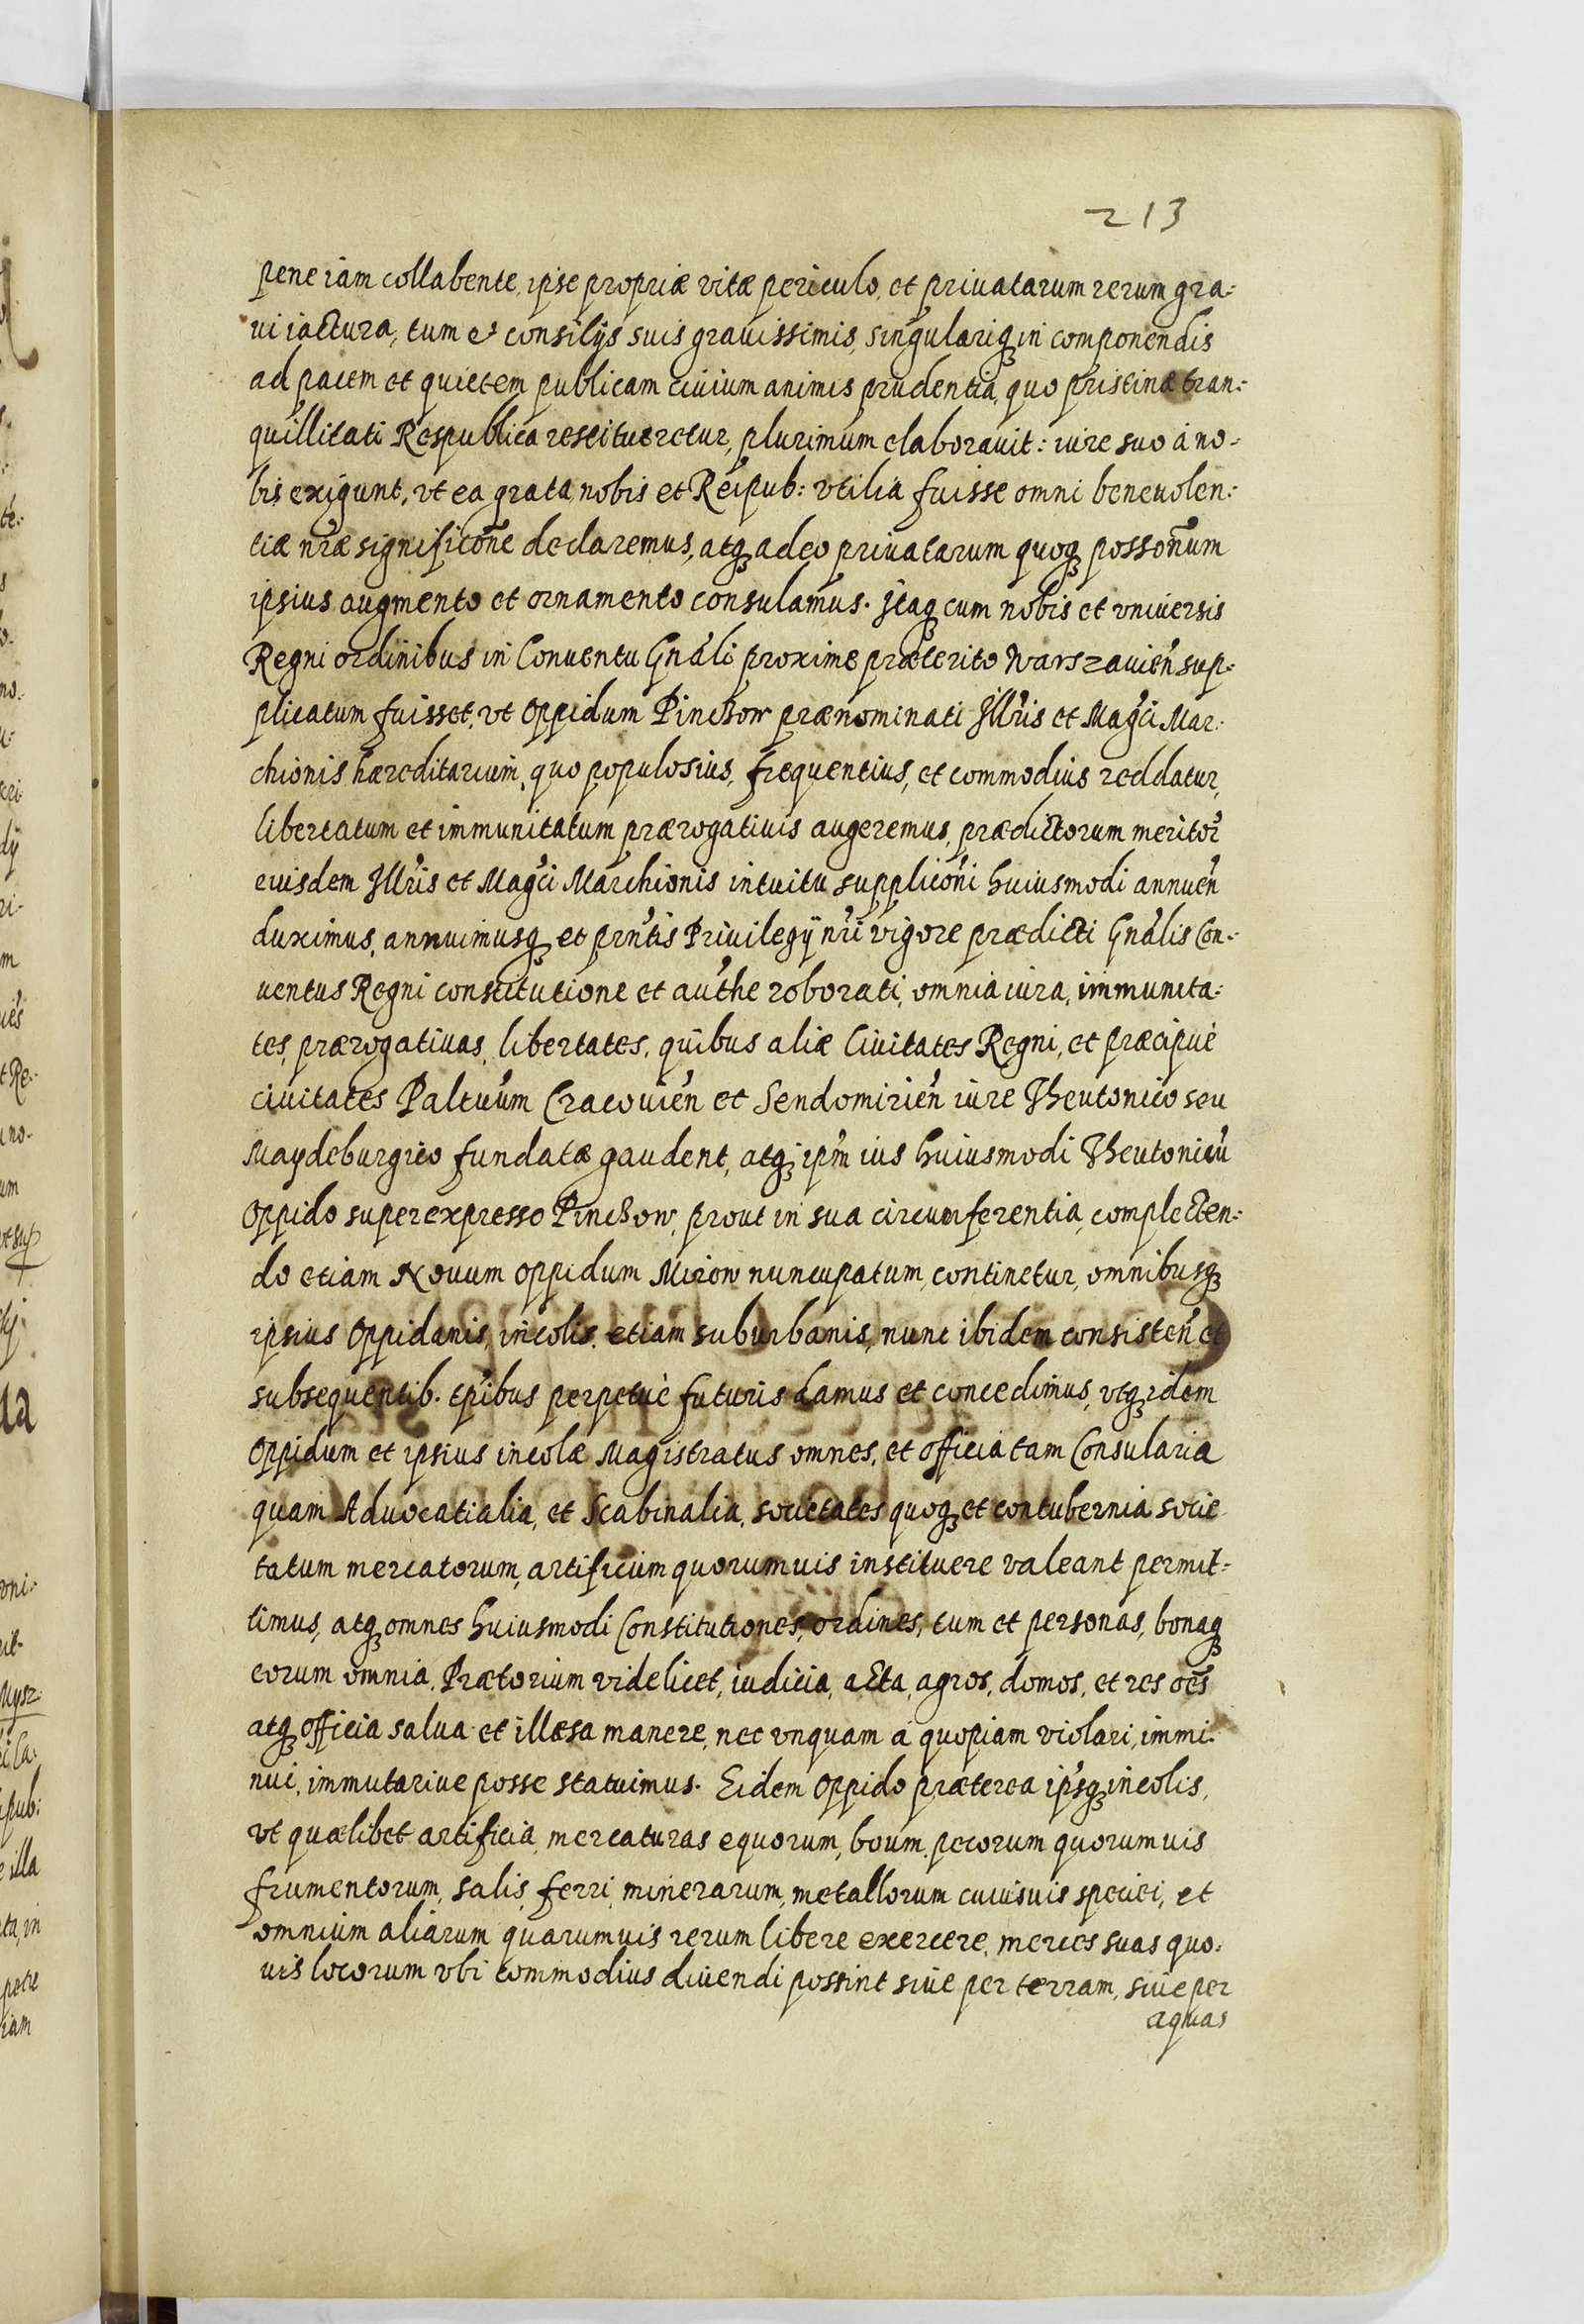 213
pene iam collabente, ipse propriæ vitæ periculo, et priuatarum rerum gra-
ui iactura, tum et consilijs suis grauissimis, singulariq; in componendis
ad pacem et quietem publicam ciuium animis prudentia, quo pristinæ tran-
quillitati Respublica restitueretur, plurimum elaborauit: iure suo à no-
bis exigunt, vt ea grata nobis et Reipub: vtilia fuisse omni beneuolen-
tiæ nr̃æ significõne declaremus, atq; adeo priuatarum quoq; possoñum
ipsius augmento et ornamento consulamus. Itaq; cum nobis et vniuersis
Regni ordinibus in Conuentu Gnãli proxime præterito Warszauieñ sup-
plicatum fuisset, vt Oppidum Pinczow prænominati Illr̃is et Mag̃ci Mar-
chionis hæreditarium, quo populosius, frequentius, et commodius reddatur,
libertatum et immunitatum prærogatiuis augeremus, prædictorum meritor̃
eiusdem Illr̃is et Mag̃ci Marchionis intuitu supplicõni huiusmodi annueñ
duximus, annuimusq; et prñtis Priuilegij nr̃i vigore prædicti Gnãlis Con-
uentus Regni constitutione et auth̃e roborati, omnia iura, immunita-
tes, prærogatiuas, libertates, quibus aliæ Ciuitates Regni, et præcipuè
ciuitates Paltuũm Cracouieñ et Sendomirieñ iure Theutonico seu
Maydeburgico fundatæ gaudent, atq; ipm̃ ius huiusmodi Theutonicũ
Oppido superexpresso Pinczow, prout in sua circumferentia, complecten-
do etiam Nouum oppidum Mirow nuncupatum, continetur, omnibusq;
ipsius Oppidanis, incolis, etiam suburbanis, nunc ibidem consisteñ et
subsequentib. tp̃ibus perpetuè futuris damus et concedimus, vtq; idem
Oppidum et ipsius incolæ Magistratus omnes, et officia tam Consularia
quam Aduocatialia, et Scabinalia, societates quoq; et contubernia socie
tatum mercatorum, artificum quorumuis instituere valeant permit-
timus, atq; omnes huiusmodi Constitutiones, ordines, tum et personas, bonaq;
eorum omnia, Prætorium videlicet, iudicia, acta, agros, domos, et res oẽs
atq; officia salua et illæsa manere, nec vnquam à quopiam violari, immi-
nui, immutariue posse statuimus. Eidem Oppido præterea ips̃q; incolis,
vt quælibet artificia, mercaturas equorum, boum, pecorum quorumuis
frumentorum, salis, ferri, minerarum, metallorum cuiusuis speciei, et
omnium aliarum quarumuis rerum libere exercere, merces suas quo-
uis locorum vbi commodius diuendi possint siue per terram, siue per
aquas